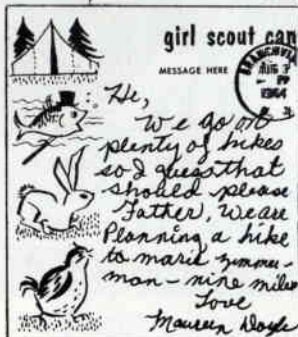 girl scout cam
MESSAGE HERE
BRANCHVIL
AUG 3
PM
1964
Hi,
We go on
plenty of hikes
so I guess that
should please
Father, We are
Planning a hike
to marie zimmer-
man - nine miles
Love
Maureen Doyle